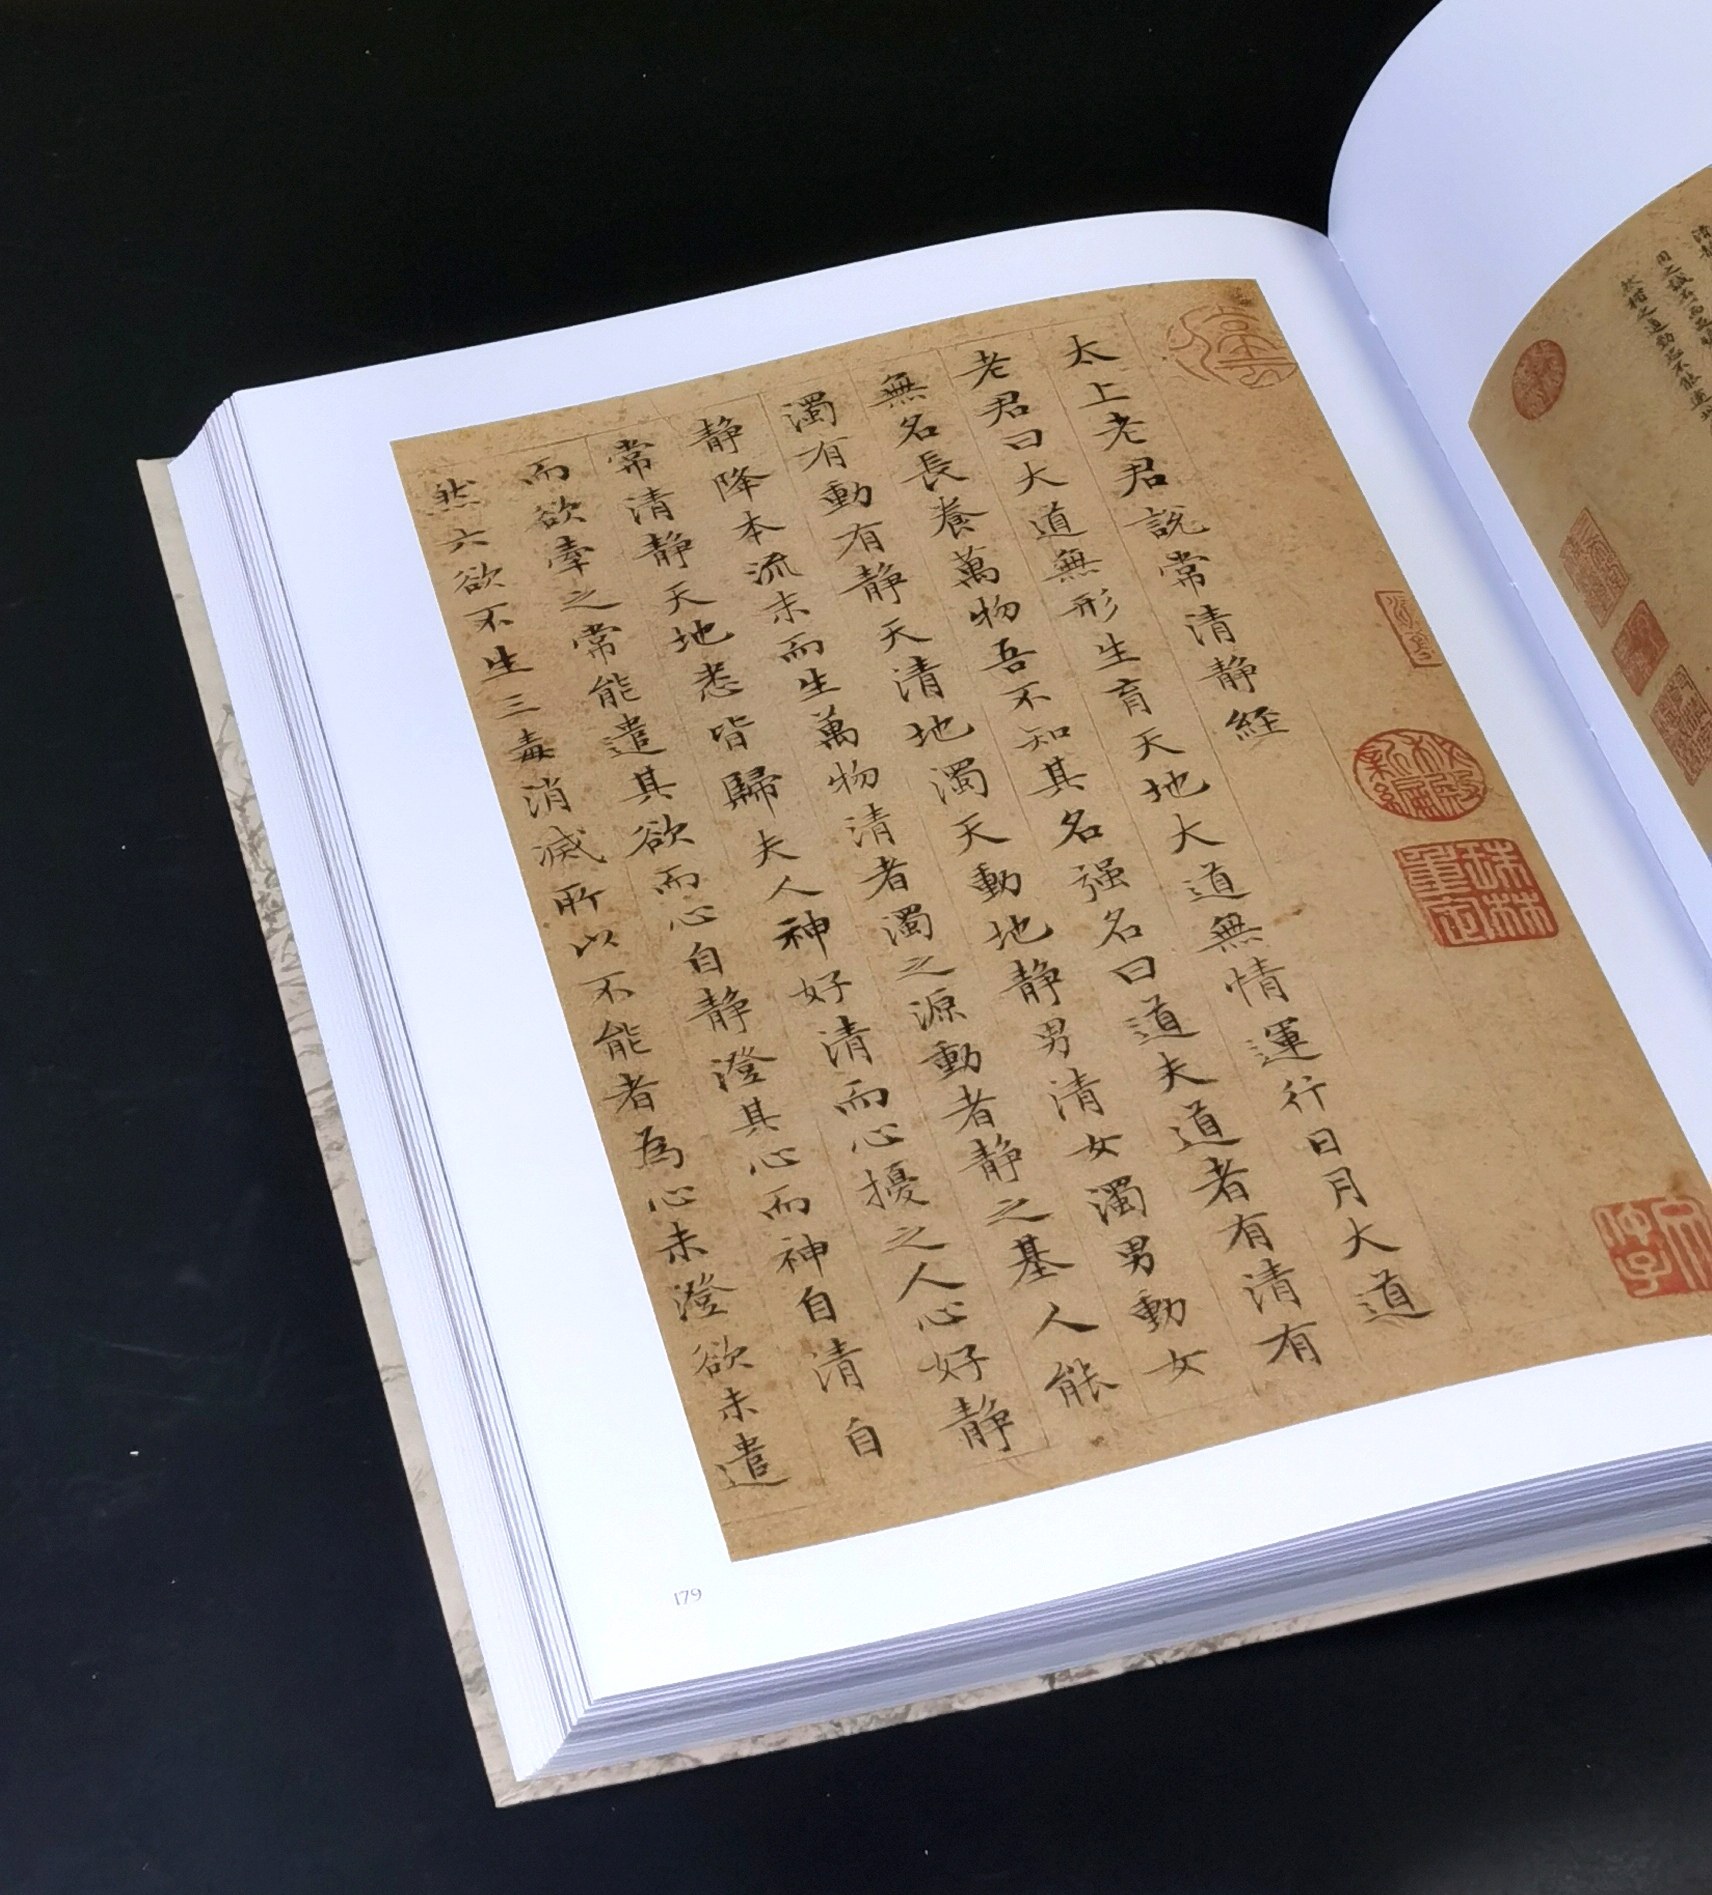 太上老君說常清静経
老君曰大道無形生育天地大道無情運行日月大道
無名長養萬物吾不知其名强名曰道夫道者有清有
濁有動有静天清地濁天動地静男清女濁男動女
静降本流末而生萬物清者濁之源動者静之基人能
常清静天地悉皆歸夫人神好清而心擾之人心好静
而欲牽之常能遣其欲而心自静澄其心而神自清自
然六欲不生三毒消滅所以不能者為心未澄欲未遣
秘殿新編
珠林重定
179